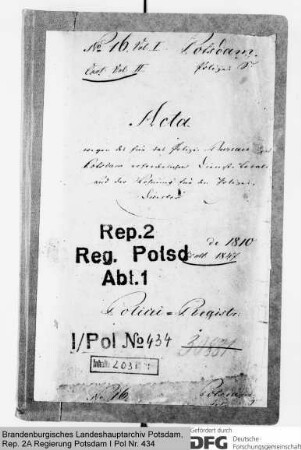 No 16. Vol. I. Potsdam.
Conf. Vol. II. Polizei
Acta
wegen des für das Polizei Bureau zu
Potsdam erforderlichen Dienst-Locals
und der Wohnung für den Polizei-
Director
Rep.2
Reg. Potsd
Abt.1
de 1810
1847
Polizei-Registr.
I/Pol No 434
Inhalt: 203
No 16 Potsdam
Brandenburgisches Landeshauptarchiv Potsdam,
Rep. 2A Regierung Potsdam I Pol Nr. 434
Gefördert durch
DFG Deutsche
Forschungsgemeinschaft